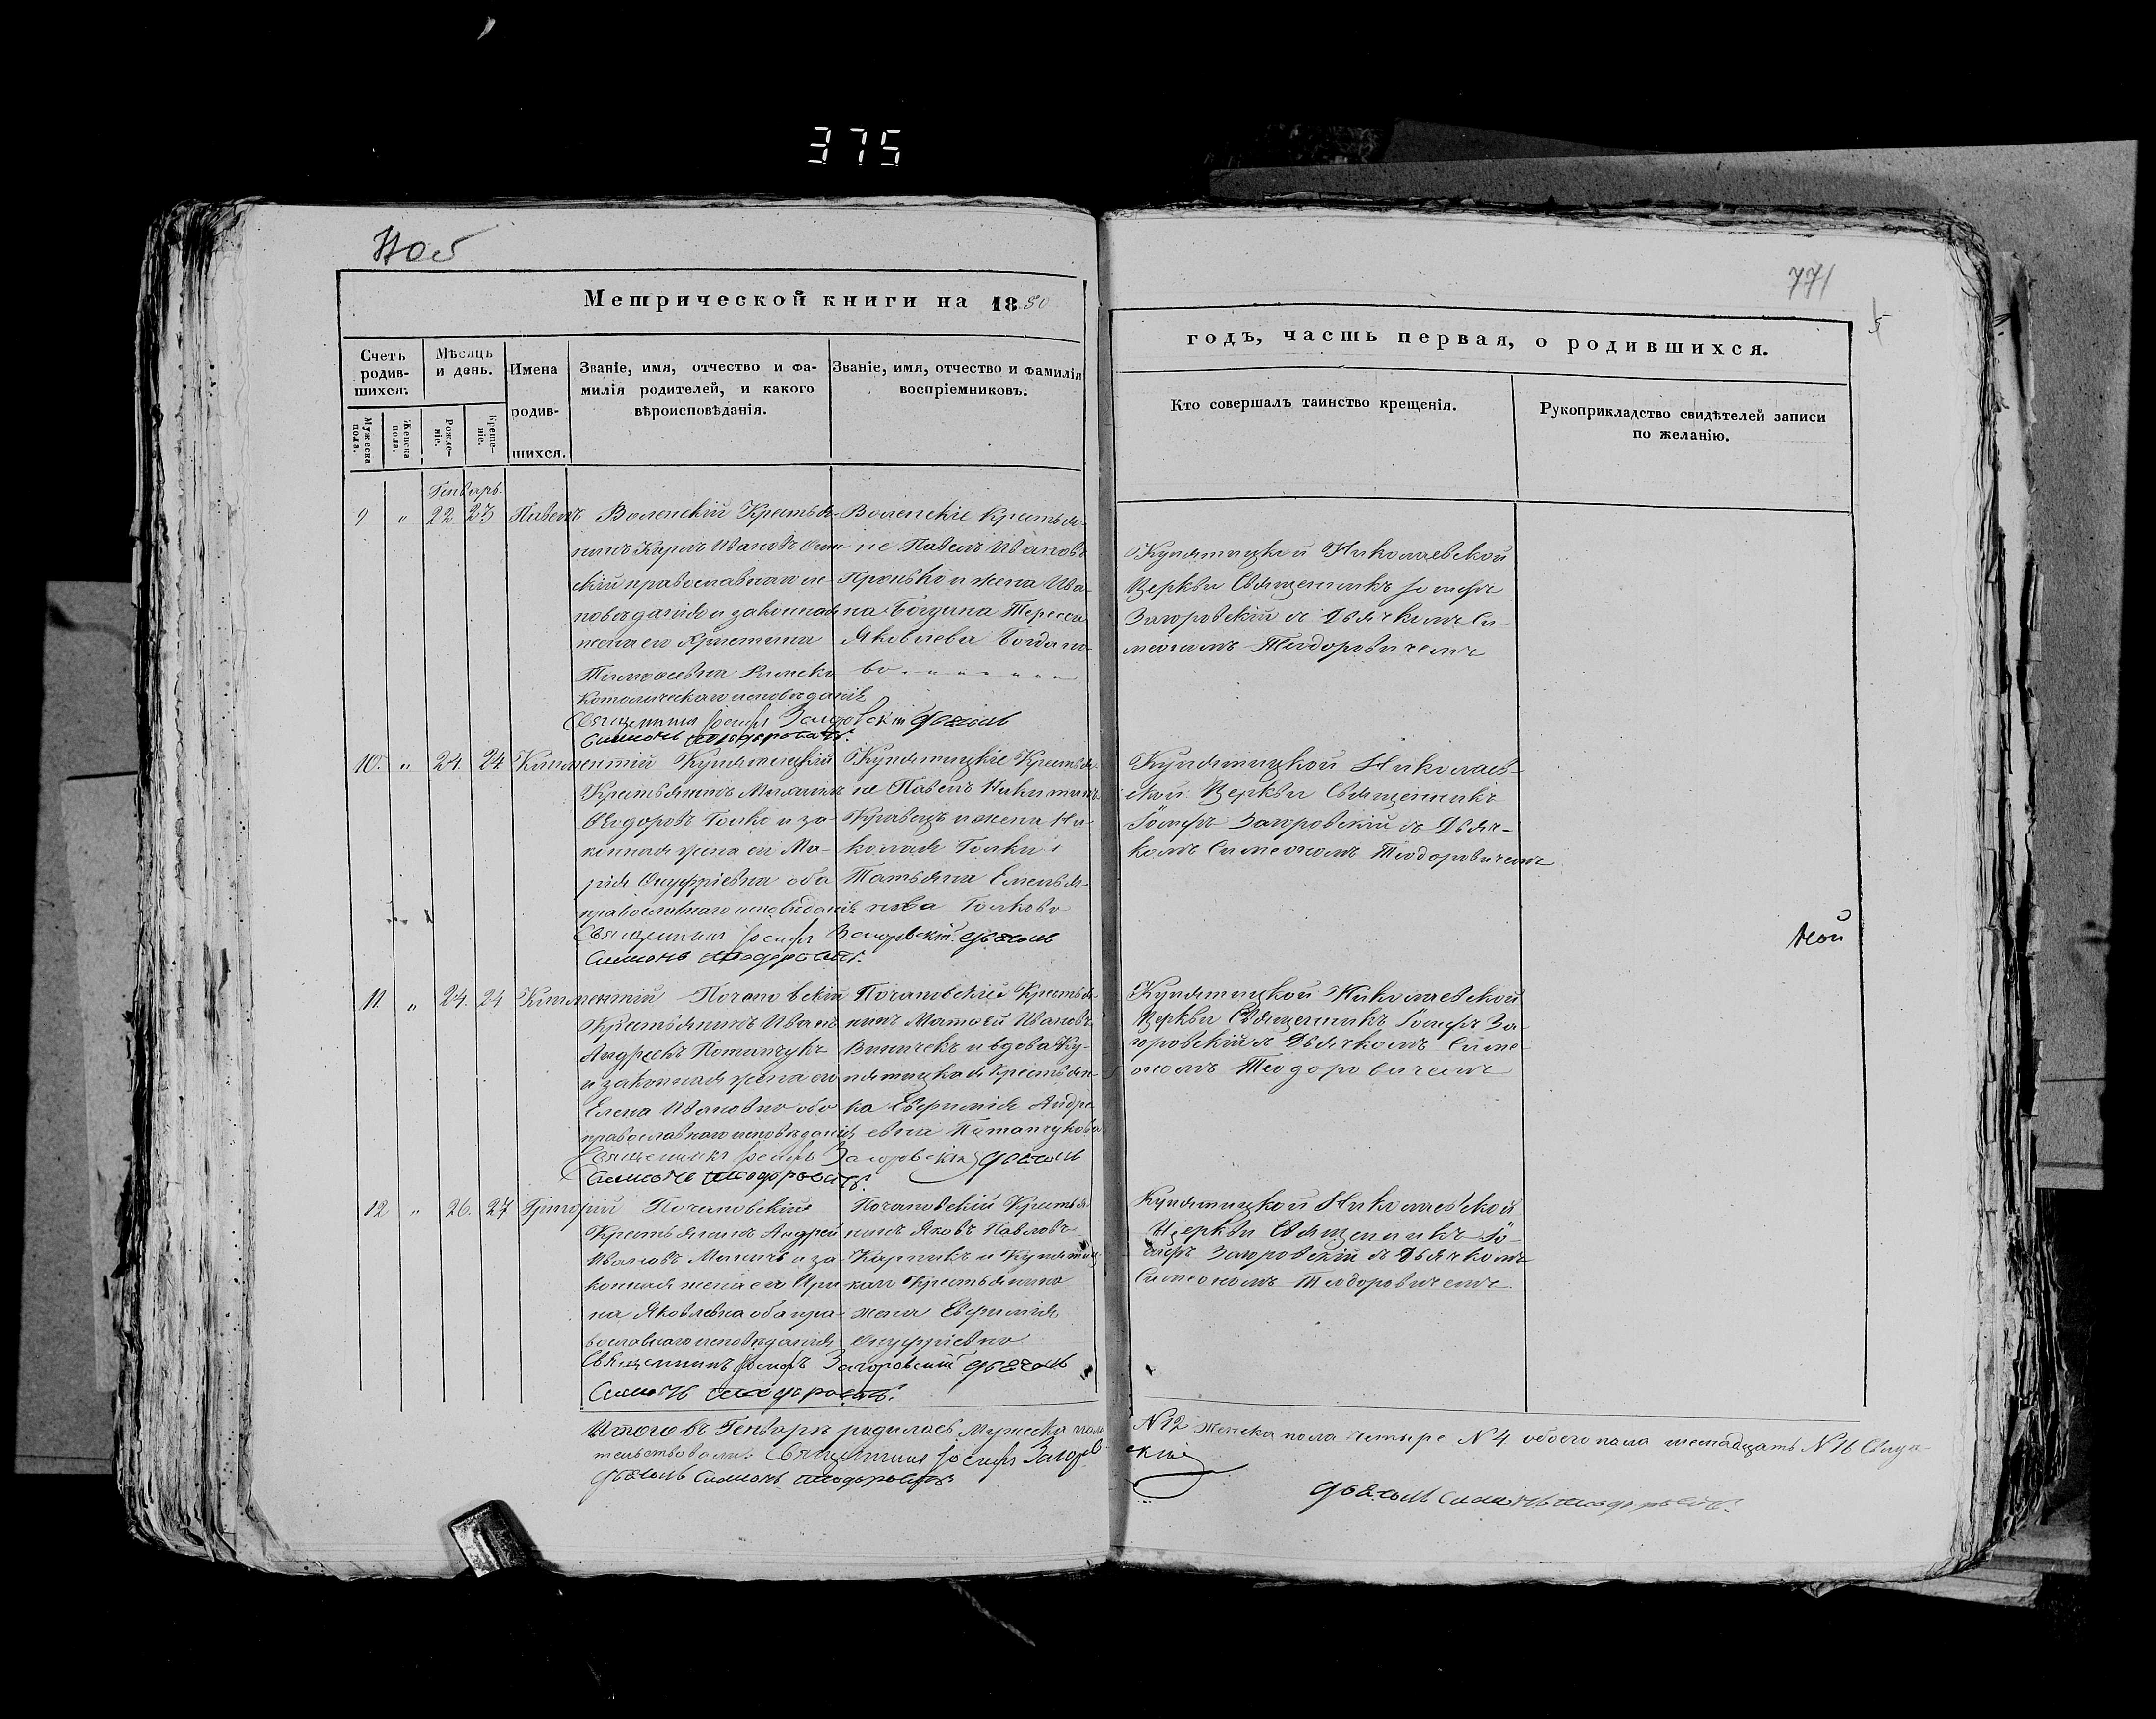 375
771
Метрической книги на 1850
годъ, часть первая, о родившихся.
Счетъ родив-шихся.
Мужеска пола.
Женска пола.
Мѣсяцъ и день.
Рожде-ніе.
Креще-ніе.
Имена родив-шихся.
Званіе, имя, отчество и фа-
милія родителей, и какого
вѣроисповѣданія.
Званіе, имя, отчество и фамилія
воспріемниковъ.
Кто совершалъ таинство крещенія.
Рукоприкладство свидѣтелей записи
по желанію.
Генварь
9 " 22 23 Павелъ
Воленскій Крестья-
нинъ Карлъ Ивановъ
скій православнаго ис-
повѣданія и законная
жена его Христина
Тимофеевна Римско
Католическаго исповѣданія
Священникъ Іосифъ Загоровскій дьячокъ
Симонъ Теодоровичъ.
Воленскіе Крестья-
не Павелъ Ивановъ
и жена Ива-
на Тересса
Яковлева Богдано-
ва
Купятицкой Николаевской
Церкви Священникъ Іосифъ
Загоровскій съ Дьячкомъ Си-
меономъ Теодоровичемъ
10. " 24. 24 Климентій
Купятицкій
Крестьянинъ Михаилъ
Ѳеодоровъ Голко и за-
конная жена его Ма-
рія Онуфріевна оба
православнаго исповѣданія
Священникъ Іосифъ Загоровскій дьячокъ
Симонъ Теодоровичъ.
Купятицкіе Крестья-
не Павелъ Никитинъ
Кравецъ и жена Ни-
колая Голки
Татьяна Емелья-
нова Голкова
Купятицкой Николаев-
ской Церкви Священникъ
Іосифъ Загоровскій съ Дьяч-
комъ Симеономъ Теодоровичемъ
11 " 24. 24 Климентій
Почаповскій
Крестьянинъ Иванъ
Андреевъ Потапчукъ
и законная жена его
Елена Ивановна оба
православнаго исповѣданія
Священникъ Іосифъ Загоровскій дьячокъ
Симонъ Теодоровичъ.
Почаповскій Крестья-
нинъ Матвѣй Ивановъ
и вдова Ку-
пятицкая Крестьян-
ка Евфимія Андре-
евна Потапчукова
Купятицкой Николаевской
Церкви Священникъ Іосифъ За-
горовскій съ Дьячкомъ Симе-
ономъ Теодоровичемъ
12 " 26. 27 Григорій
Почаповскій
Крестьянинъ Андрей
Ивановъ и за-
конная жена его Ири-
на Яковлевна оба пра-
вославнаго исповѣданія
Священникъ Іосифъ Загоровскій дьячокъ
Симонъ Теодоровичъ.
Почаповскій Крестья-
нинъ Яковъ Павловъ
Карпикъ и Купятиц-
каго Крестьянина
жена Евфимія
Онуфріевна
Купятицкой Николаевской
Церкви Священникъ Іо-
сифъ Загоровскій съ Дьячкомъ
Симеономъ Теодоровичемъ
Итого въ Генварѣ родилось Мужеска пола N 12 Женска пола четыре N 4 обоего пола шестнадцать N 16 Свидѣ-
тельствовали: Священникъ Іосифъ Загоровскій
дьячокъ Симонъ Теодоровичъ
дьячокъ Симонъ Теодоровичъ.